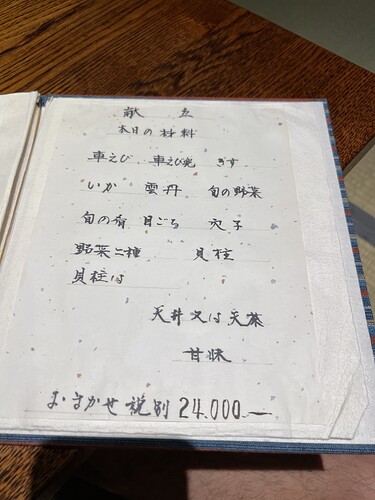 献立
本日の材料
車えび 車えび兜 きす
いか 雲丹 旬の野菜
旬の肴 目ごち 穴子
野菜二種 貝柱
貝柱は
天丼又は天茶
甘味
おまかせ 税別 24.000.—